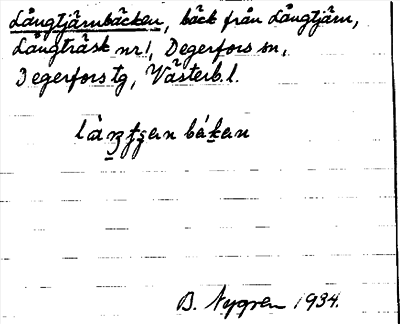 Långtjärnbäcken, bäck från Långtjärn,
Långträsk nr 1, Degerfors sn,
Degerfors tg, Västerb. l.
B. Nygren 1934.